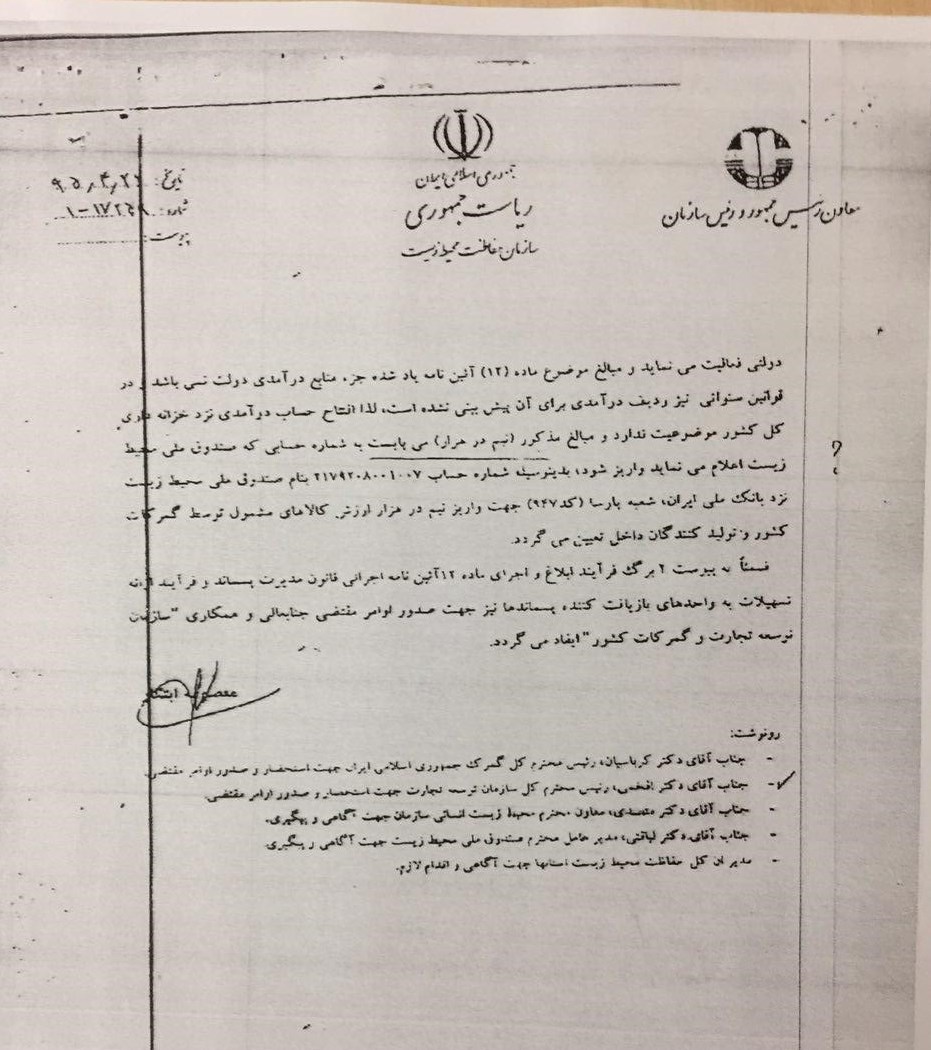 جمهوری اسلامی ایران
ریاست جمهوری
سازمان حفاظت محیط زیست
معاون رئیس جمهور و رئیس سازمان
تاریخ:
شماره:
پیوست:
دولتی فعالیت می نماید و مبالغ موضوع ماده (۱۲) آئین نامه یاد شده جزء منابع درآمدی دولت نمی باشد و در
قوانین سنواتی نیز ردیف درآمدی برای آن پیش بینی نشده است، لذا افتتاح حساب درآمدی نزد خزانه داری
کل کشور موضوعیت ندارد و مبالغ مذکور (نیم در هزار) می بایست به شماره حسابی که صندوق ملی محیط
زیست اعلام می نماید واریز شود، بدینوسیله شماره حساب ۲۱۷۹۲۰۸۰۰۱۰۰۷ بنام صندوق ملی محیط زیست
نزد بانک ملی ایران، شعبه پارسا (کد ۹۴۷) جهت واریز نیم در هزار ارزش کالاهای مشمول توسط گمرکات
کشور و تولید کنندگان داخل تعیین می گردد.
ضمناً به پیوست ۲ برگ فرآیند ابلاغ و اجرای ماده ۱۲ آئین نامه اجرائی قانون مدیریت پسماند و فرآیند ارائه
تسهیلات به واحدهای بازیافت کننده پسماندها نیز جهت صدور اوامر مقتضی جنابعالی و همکاری "سازمان
توسعه تجارت و گمرکات کشور" ایفاد می گردد.
معصومه ابتکار
رونوشت:
- جناب آقای دکتر کرباسیان، رئیس محترم کل گمرک جمهوری اسلامی ایران جهت استحضار و صدور اوامر مقتضی.
- جناب آقای دکتر افخمی، رئیس محترم کل سازمان توسعه تجارت جهت استحضار و صدور اوامر مقتضی.
- جناب آقای دکتر متصدی، معاون محترم محیط زیست انسانی سازمان جهت آگاهی و پیگیری.
- جناب آقای دکتر لیاقتی، مدیر عامل محترم صندوق ملی محیط زیست جهت آگاهی و پیگیری.
- مدیران کل حفاظت محیط زیست استانها جهت آگاهی و اقدام لازم.